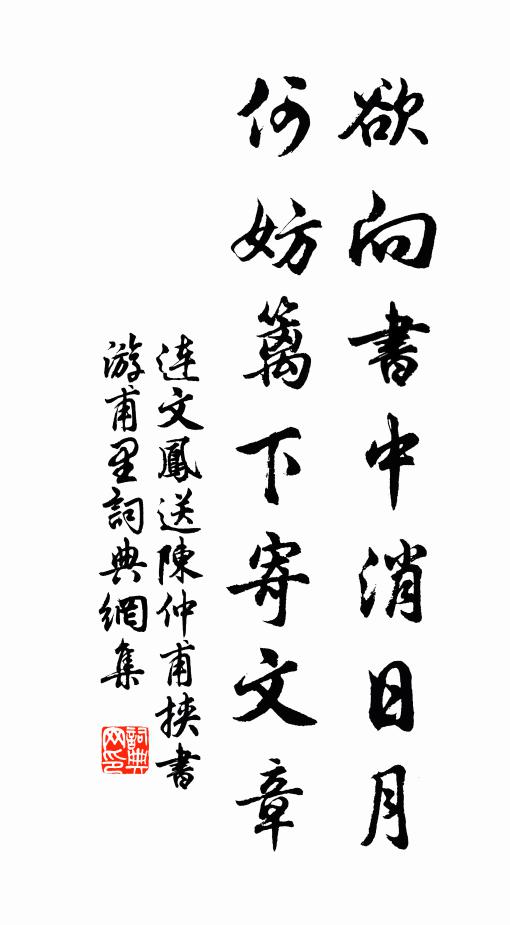 欲向書中消日月
何妨籬下寄文章
連文鳳送陳仲甫挾書
游甫里詞典網集
詞典網印